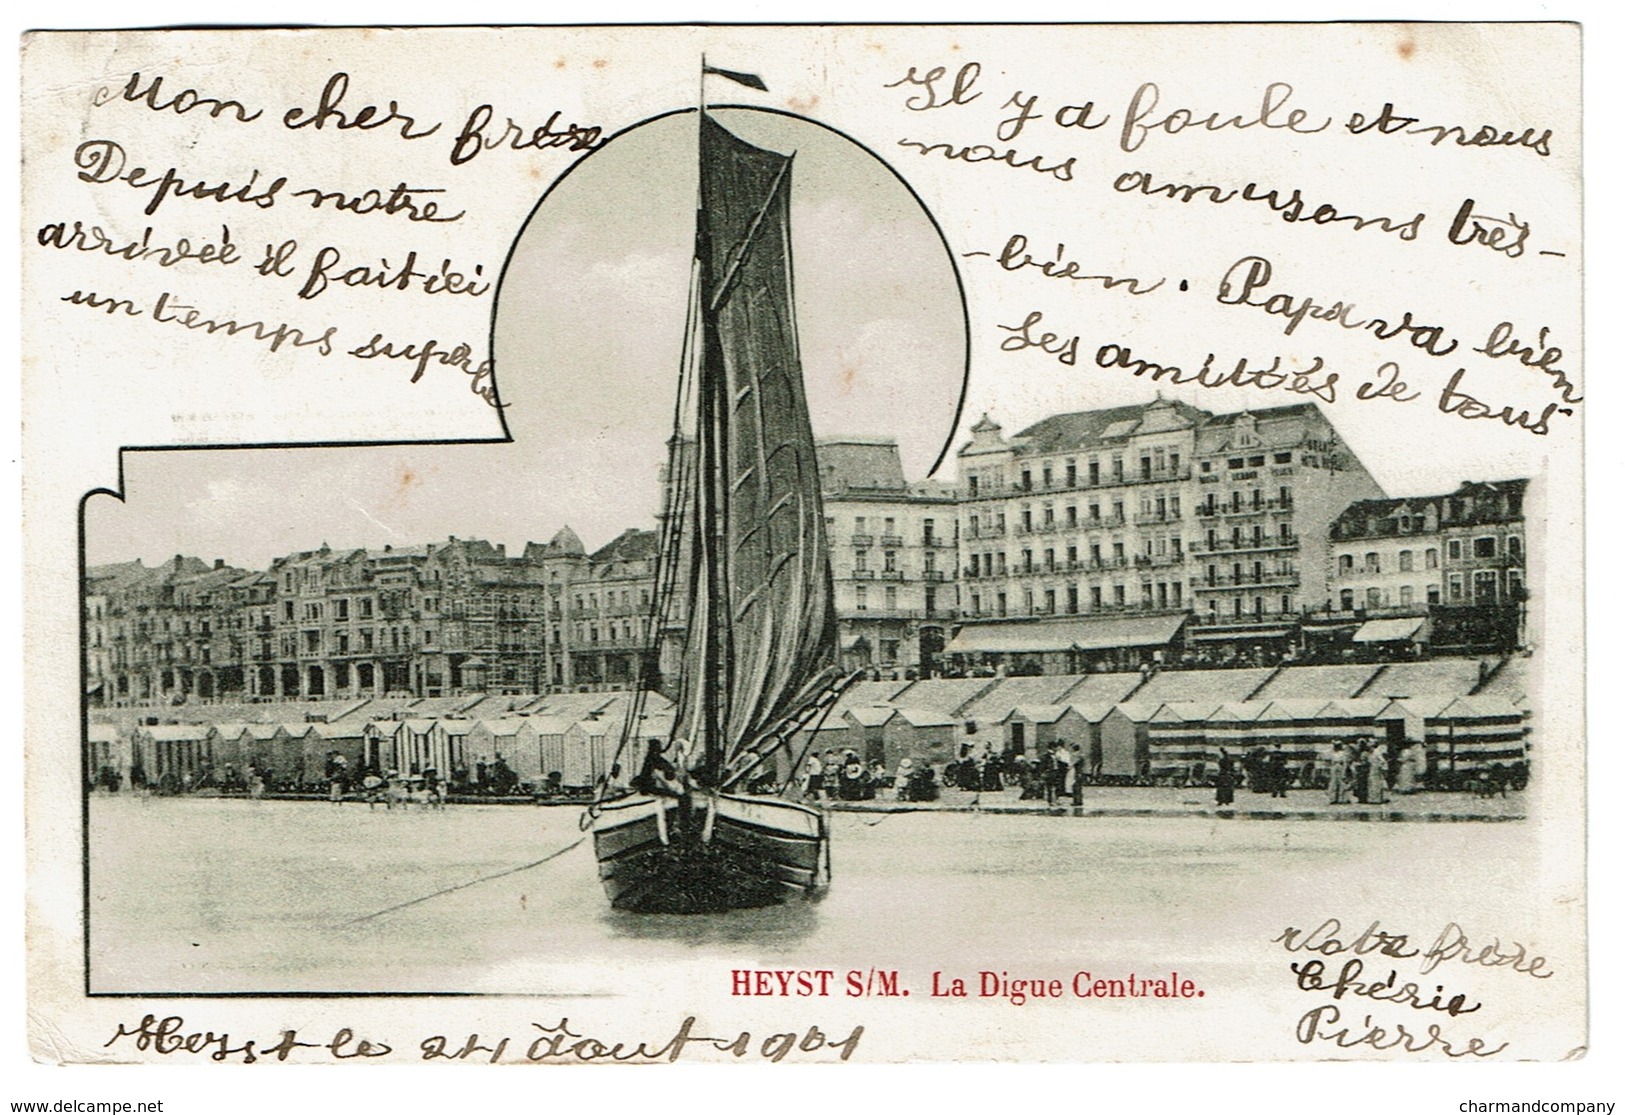 Mon cher frère
Depuis notre
arrivée il fait ici
un temps superbe
Il y a foule et nous
nous amusons très-
-bien. Papa va bien
Les amitiés de tous
GRAND
HOTEL
HEYST S/M. La Digue Centrale.
Votre frère
Chéri
Pierre
Heyst le 24 Août 1901
delcampe.net
charmandcompany